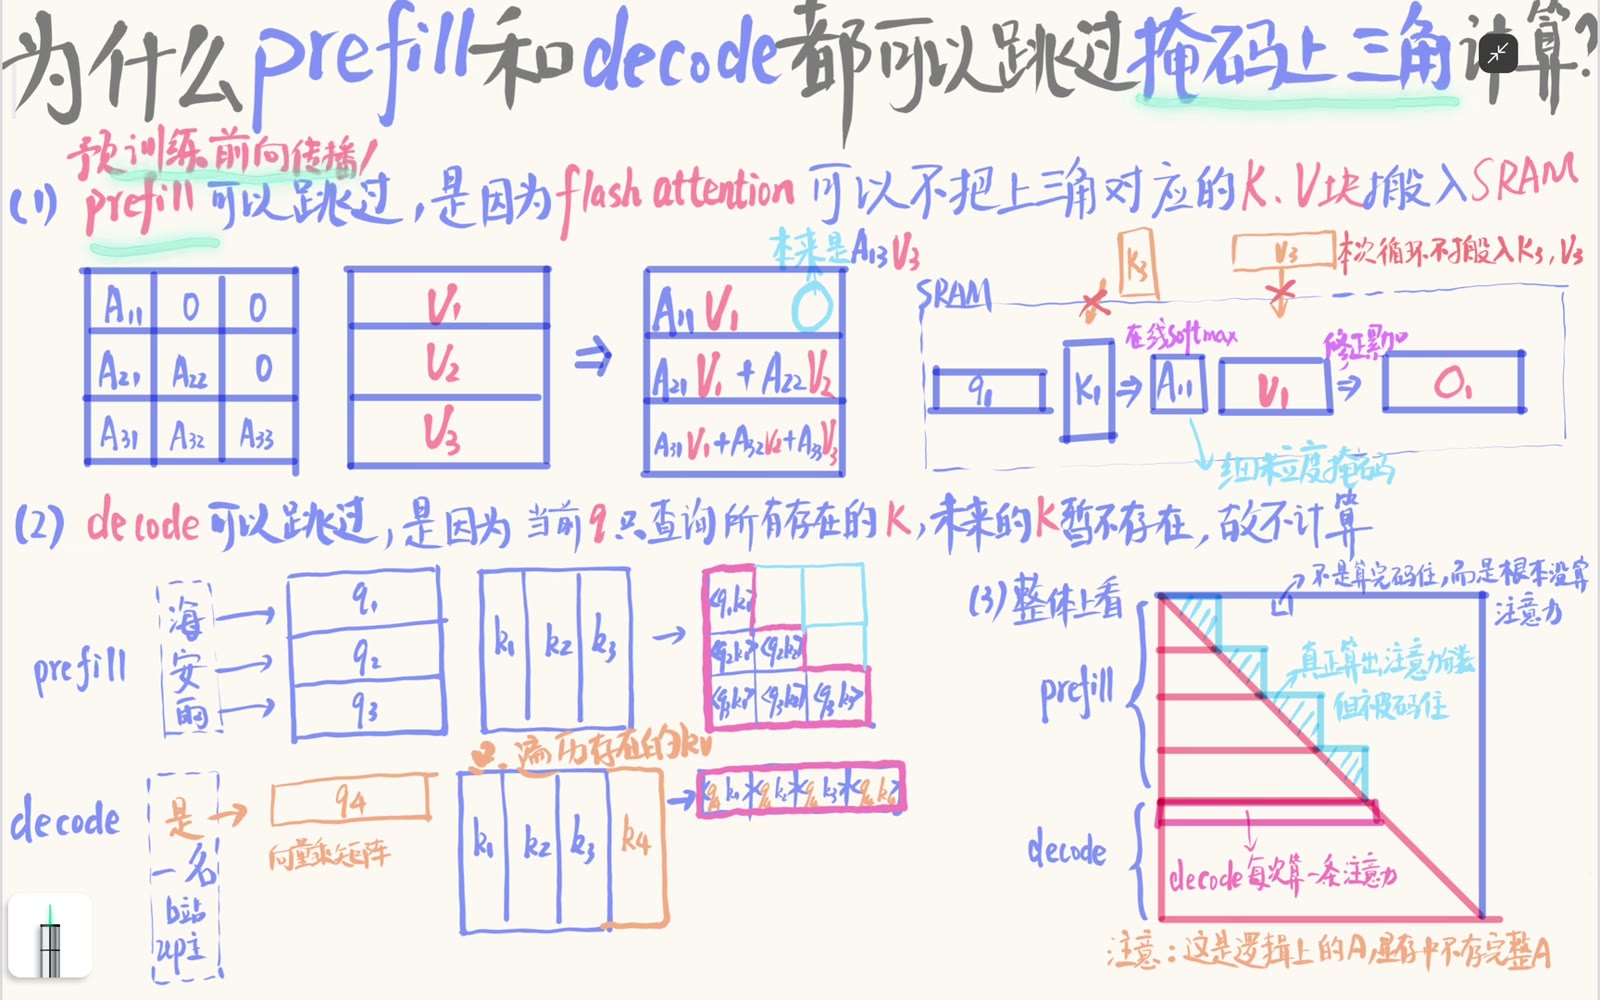 为什么prefill和decode都可以跳过掩码上三角计算?
预训练前向传播!
(1) prefill可以跳过,是因为flash attention可以不把上三角对应的K、V块搬入SRAM
本来是A13V3
A11 0 0
A21 A22 0
A31 A32 A33
V1
V2
V3
⇒
A11V1 0
A21V1+A22V2
A31V1+A32V2+A33V3
K3
V3
本次循环不搬入K3,V3
SRAM
在线softmax
修正累加
q1 K1 ⇒ A11 V1 ⇒ O1
细粒度掩码
(2) decode可以跳过,是因为当前q只查询所有存在的K,未来的K暂不存在,故不计算
prefill
海
安
雨
q1
q2
q3
k1 k2 k3
<q1k1>
<q2k1> <q2k2>
<q3k1> <q3k2> <q3k3>
遍历存在的kv
decode
是
一名
b站
up主
q4
向量乘矩阵
k1 k2 k3 k4
<q4k1> <q4k2> <q4k3> <q4k4>
(3)整体上看
不是算完码住,而是根本没算
注意力
真正算出注意力分数
但被码住
prefill
decode
decode每次算一条注意力
注意:这是逻辑上的A,显存中不存完整A